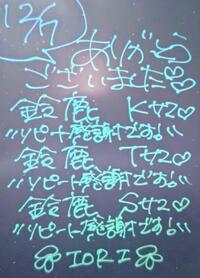 12/7
ありがとう
ございました♡
鈴鹿 K様♡
"リピート感謝です♪"
鈴鹿 T様♡
"リピート感謝です♪"
鈴鹿 S様♡
"リピート感謝です♪"
IORI